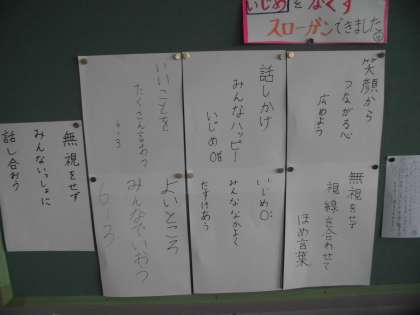 いじめをなくす
スローガンできました
笑顔から
つながる心
広めよう
話しかけ
みんなハッピー
いじめ0
いいことを
たくさん言おう
6-3
無視をせず
視線を合わせて
ほめ言葉
いじめ0
みんなかよく
たすけあう
よいところ
みんなでいおう
6-3
無視をせず
みんないっしょに
話し合おう